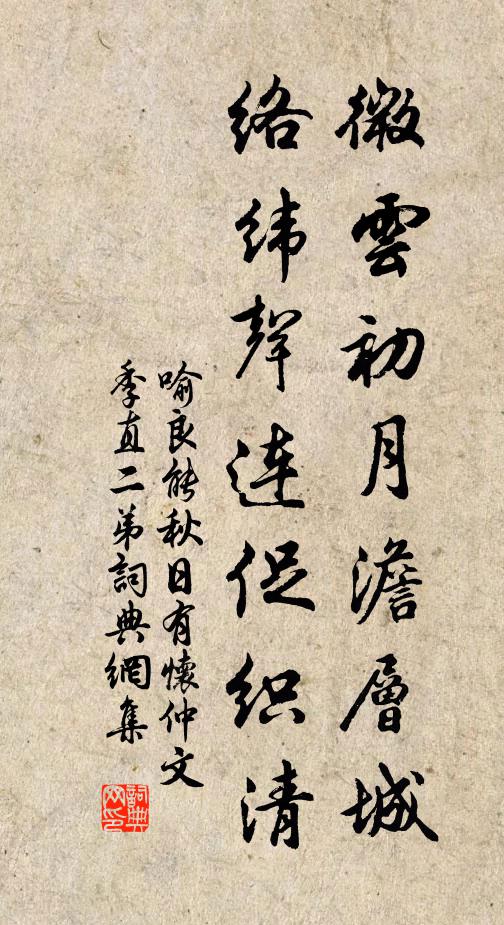 微雲初月澹層城
絡緯聲連促织清
喻良能秋日有懷仲文
季直二弟詞典網集
詞典网印